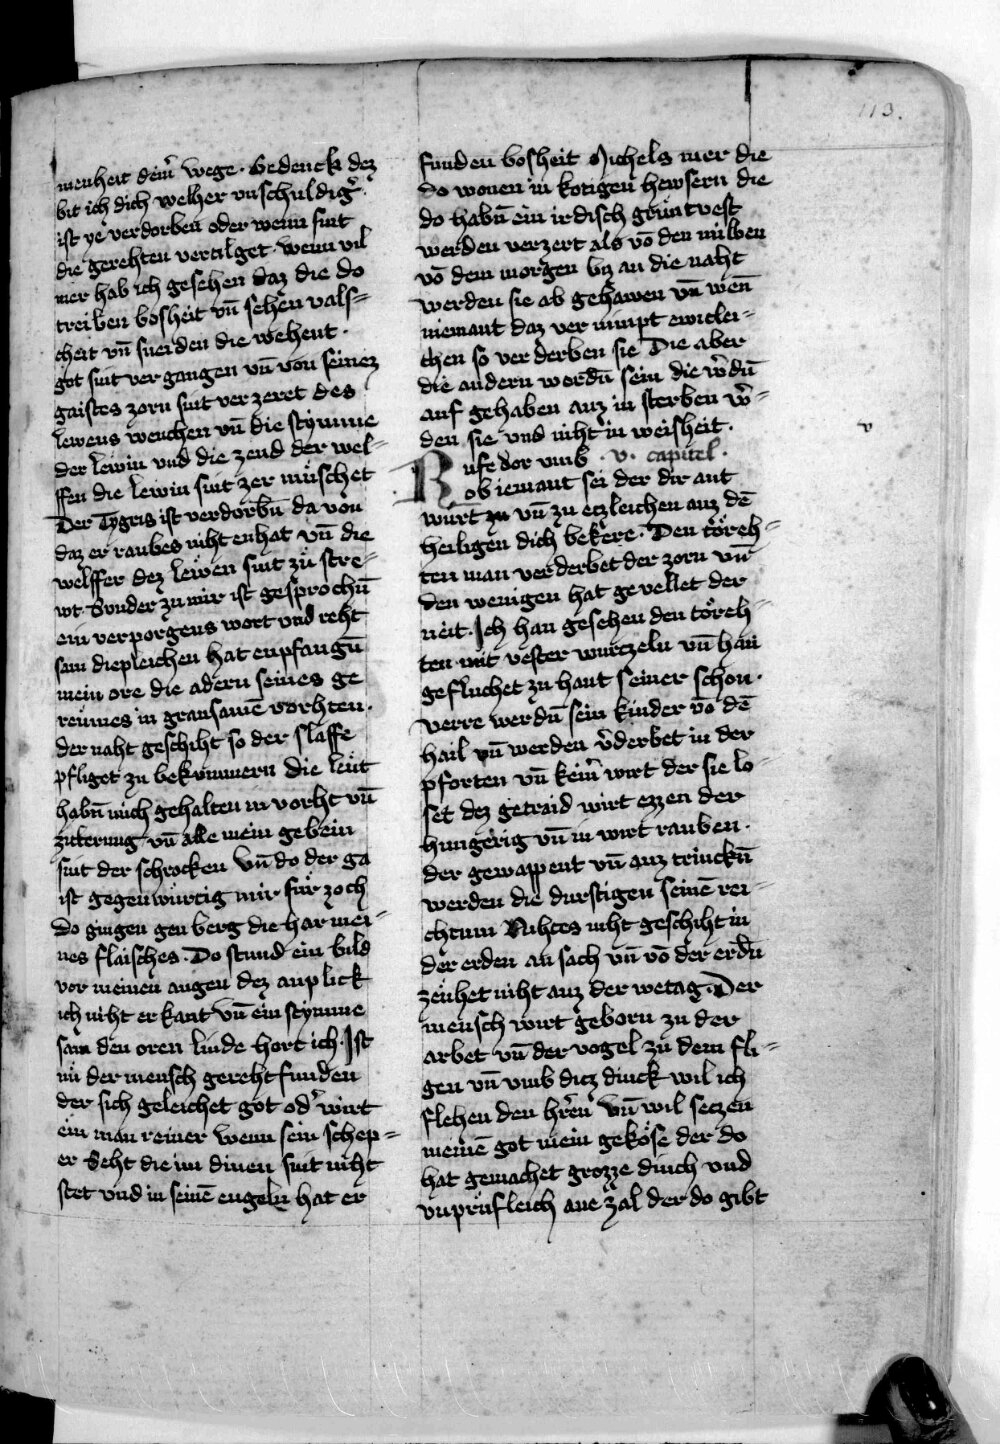 113.
menheit dein̄ wege · Gedenck dez
bit ich dich welher vnschuldiḡ
ist ye verdorben oder wenn sint
die gerehten vertilget · wenn vil
mer hab ich gesehen daz die do
treiben bosheit vn̄ sehen vals=
cheit vn̄ sneiden die wehent ·
got sint vergangen vn̄ von seinez
gaistes zorn sint verzeret des
lewens wenchen vn̄ die stymme
der lewin vnd die zend der wel=
ffen die lewin sint zermüschet
Der Tygris ist verdorbn̄ da von
daz er raubes niht enhat vn̄ die
welffer dez lewen sint zü stre=
wt · Sunder zu mir ist gesprochn̄
ein verporgens wort vnd reht
sam diepleichen hat enpfangn̄
mein ore die adern seines ge
reümes in gransamē vorhten ·
der naht geschiht so der slaffe
pfliget zu bekummern die leüt
habn̄ mich gehalten in vorht vn̄
ziterung vn̄ alle mein gebein
sint der schrocken Vn̄ do der ga
ist gegenwürtig mir für zoch
do gingen gen berg die har mei=
nes flaisches · Do stund ein bild
vor meinen augen dez anplick
ich niht erkant vn̄ ein stymme
sam den oren linde hort ich · Ist
nü der mensch gereht funden
der sich geleichet got od̾ wirt
ein man reiner wenn sein schep=
er Seht die im dinen sint niht
stet vnd in seinē engeln hat er
funden bosheit Michels mer die
do wonen in kotigen hewsern die
do habn̄ ein irdisch gruntvest
werden verzert als vō den milben
vō dem morgen bis an die naht
werden sie ab gehawen vn̄ wen̄
niemant daz vernimpt ewiclei=
chen so verderben sie Die aber
die andern werdn̄ sein die w̄dn̄
auf gehaben auz in sterben w̄=
den sie vnd niht in weisheit ·
v
Rufe dor vmb · v · capitel ·
ob iemant sei der dir ant
wurt zu vn̄ zu etzleichen auz dē
heiligen dich bekere · Den töreh=
ten man verderbet der zorn vn̄
den wenigen hat gevellet der
neit · Ich han gesehen den töreh=
ten mit vester wurczeln vn̄ han
gefluchet zu hant seiner schon ·
verre werdn̄ sein kinder vō dē
hail vn̄ werden v̄derbet in der
pforten vn̄ kein̄ wirt der sie lo=
set dez getraid wirt ezzen der
hungerig vn̄ in wirt rauben ·
der gewappent vn̄ auz trinckn̄
werden die durstigen seinē rei=
chtum Nihtes niht geschiht in
der erden an sach vn̄ vō der erdn̄
zeühet niht auz der wetag · Der
mensch wirt geborn zu der
arbet vn̄ der vogel zu dem fli=
gen vn̄ vmb ditz dinck wil ich
flehen den hr̄en Vn̄ wil seczen
meinē got mein geköse der do
hat gemachet grozze dinch vnd
vnprüfleich ane zal der do gibt